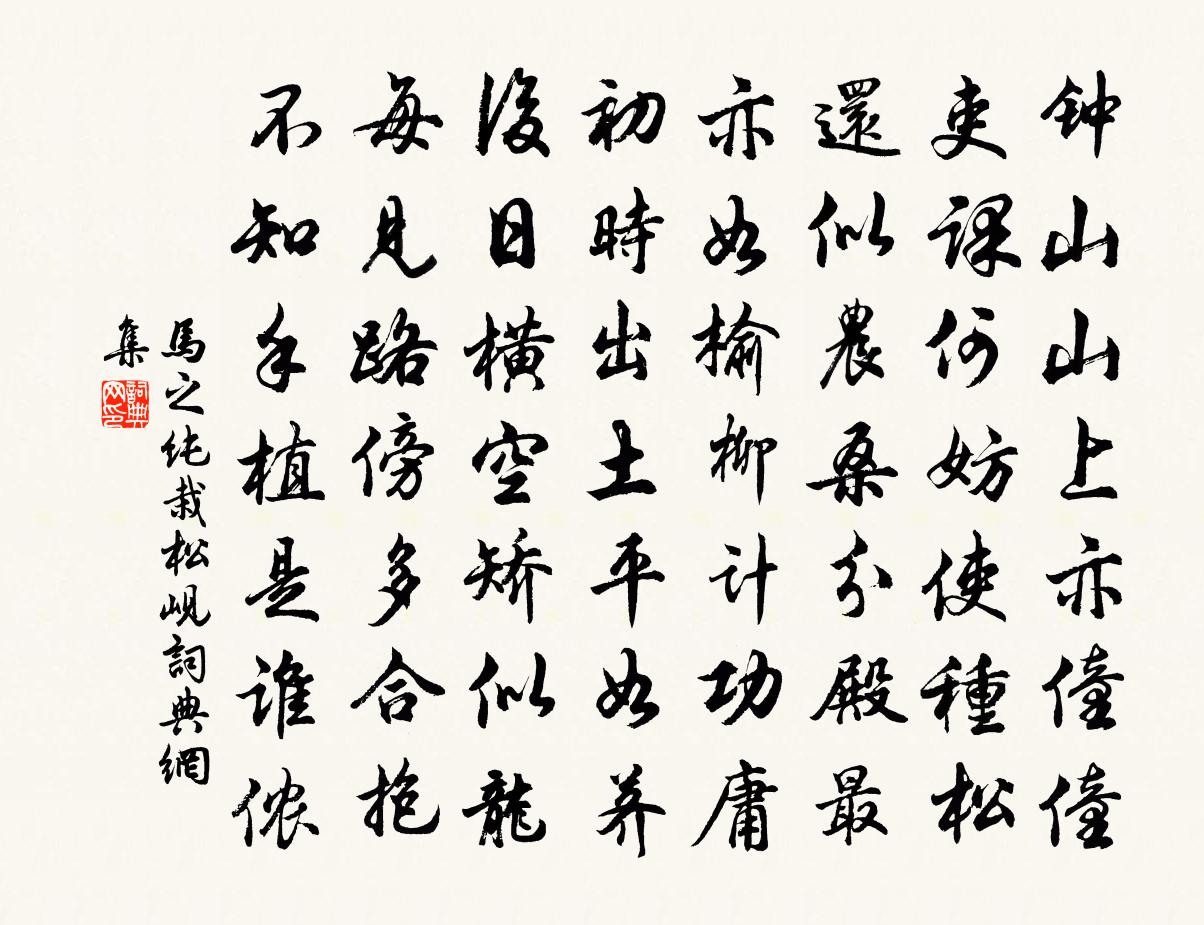 钟山山上亦僮僮
吏課何妨使種松
還似農桑分殿最
亦如榆柳計功庸
初時出土平如荠
後日橫空矫似龍
每見路傍多合抱
不知手植是谁侬
馬之纯栽松岘詞典網
集
詞典
网印